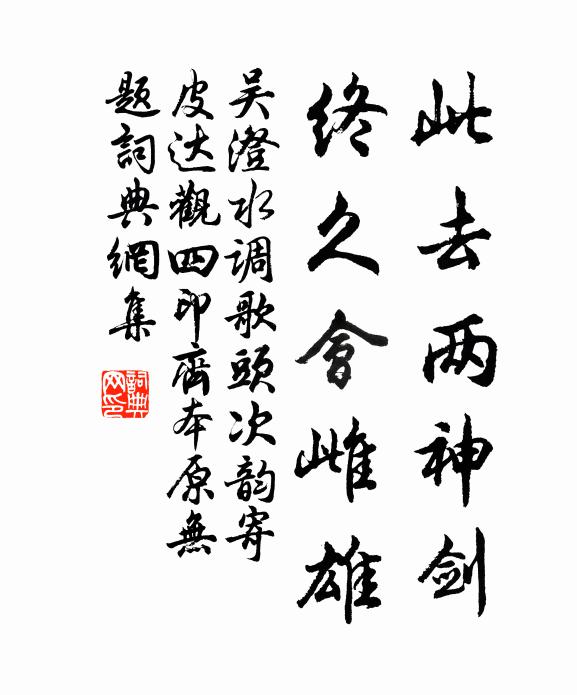 此去两神剑
终久會雌雄
吴澄水调歌頭次韵寄
皮达觀四印齋本原無
题詞典網集
詞典
网印